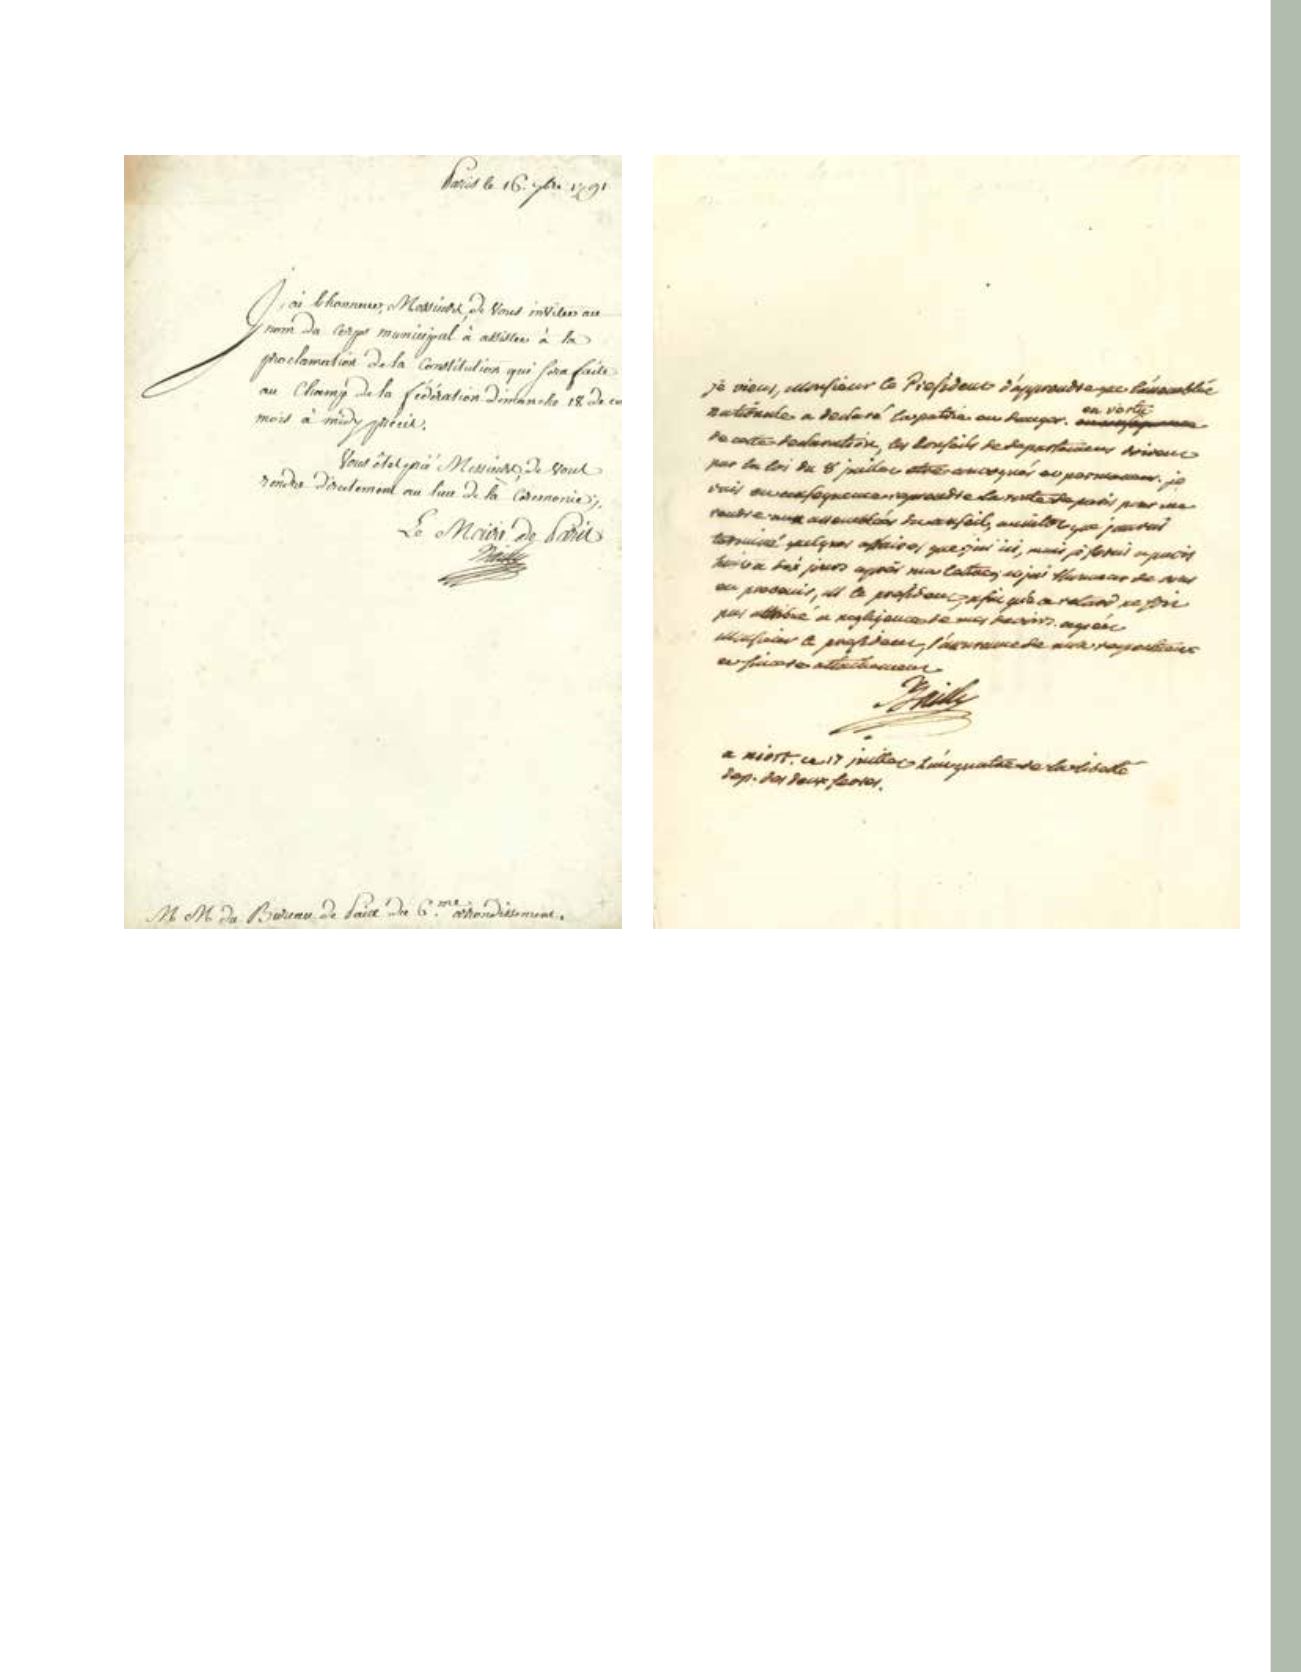 Paris le 16. 7bre 1791
J'ai l'honneur, Messieurs, de Vous inviter au
nom du Corps municipal à assister à la
proclamation de la Constitution qui sera faite
au Champ de la fédération dimanche 18 de ce
mois à midy précis.
Vous êtes prié Messieurs, de Vous
rendre directement au lieu de la Cérémonie;
Le Maire de Paris
Bailly
M M du Bureau de Paix du 6.me arrondissement.
je viens, monsieur le President d'apprendre que l'assemblée
nationale a declaré la patrie en danger. en vertu
de cette declaration, les Conseils de departemens doivent
par la loi du 8 juillet etre convoqués en permanence. je
vais en consequence reprendre la route de paris pour me
rendre aux assemblées du conseil, aussitot que j'aurai
terminé quelques affaires que j'ai ici, mais je serai a paris
huit a dix jours après ma lettre; et j'ai l'honneur de vous
en prevenir, M le president, afin que ce retard ne soit
pas attribué a negligence de mes devoirs. agréés
Monsieur le president, l'assurance de mon respectueux
et sincere attachement
Bailly
a niort. ce 17 juillet l'an quatre de la liberté
dep. des deux sevres.